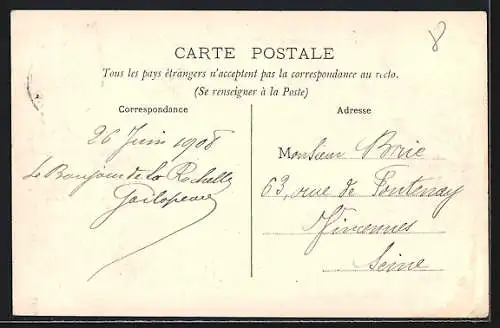 8
CARTE POSTALE
Tous les pays étrangers n'acceptent pas la correspondance au recto.
(Se renseigner à la Poste)
Correspondance
Adresse
26 Juin 1908
Le Bonjour de La Rochelle
Monsieur Brie
63, rue de Fontenay
Vincennes
Seine